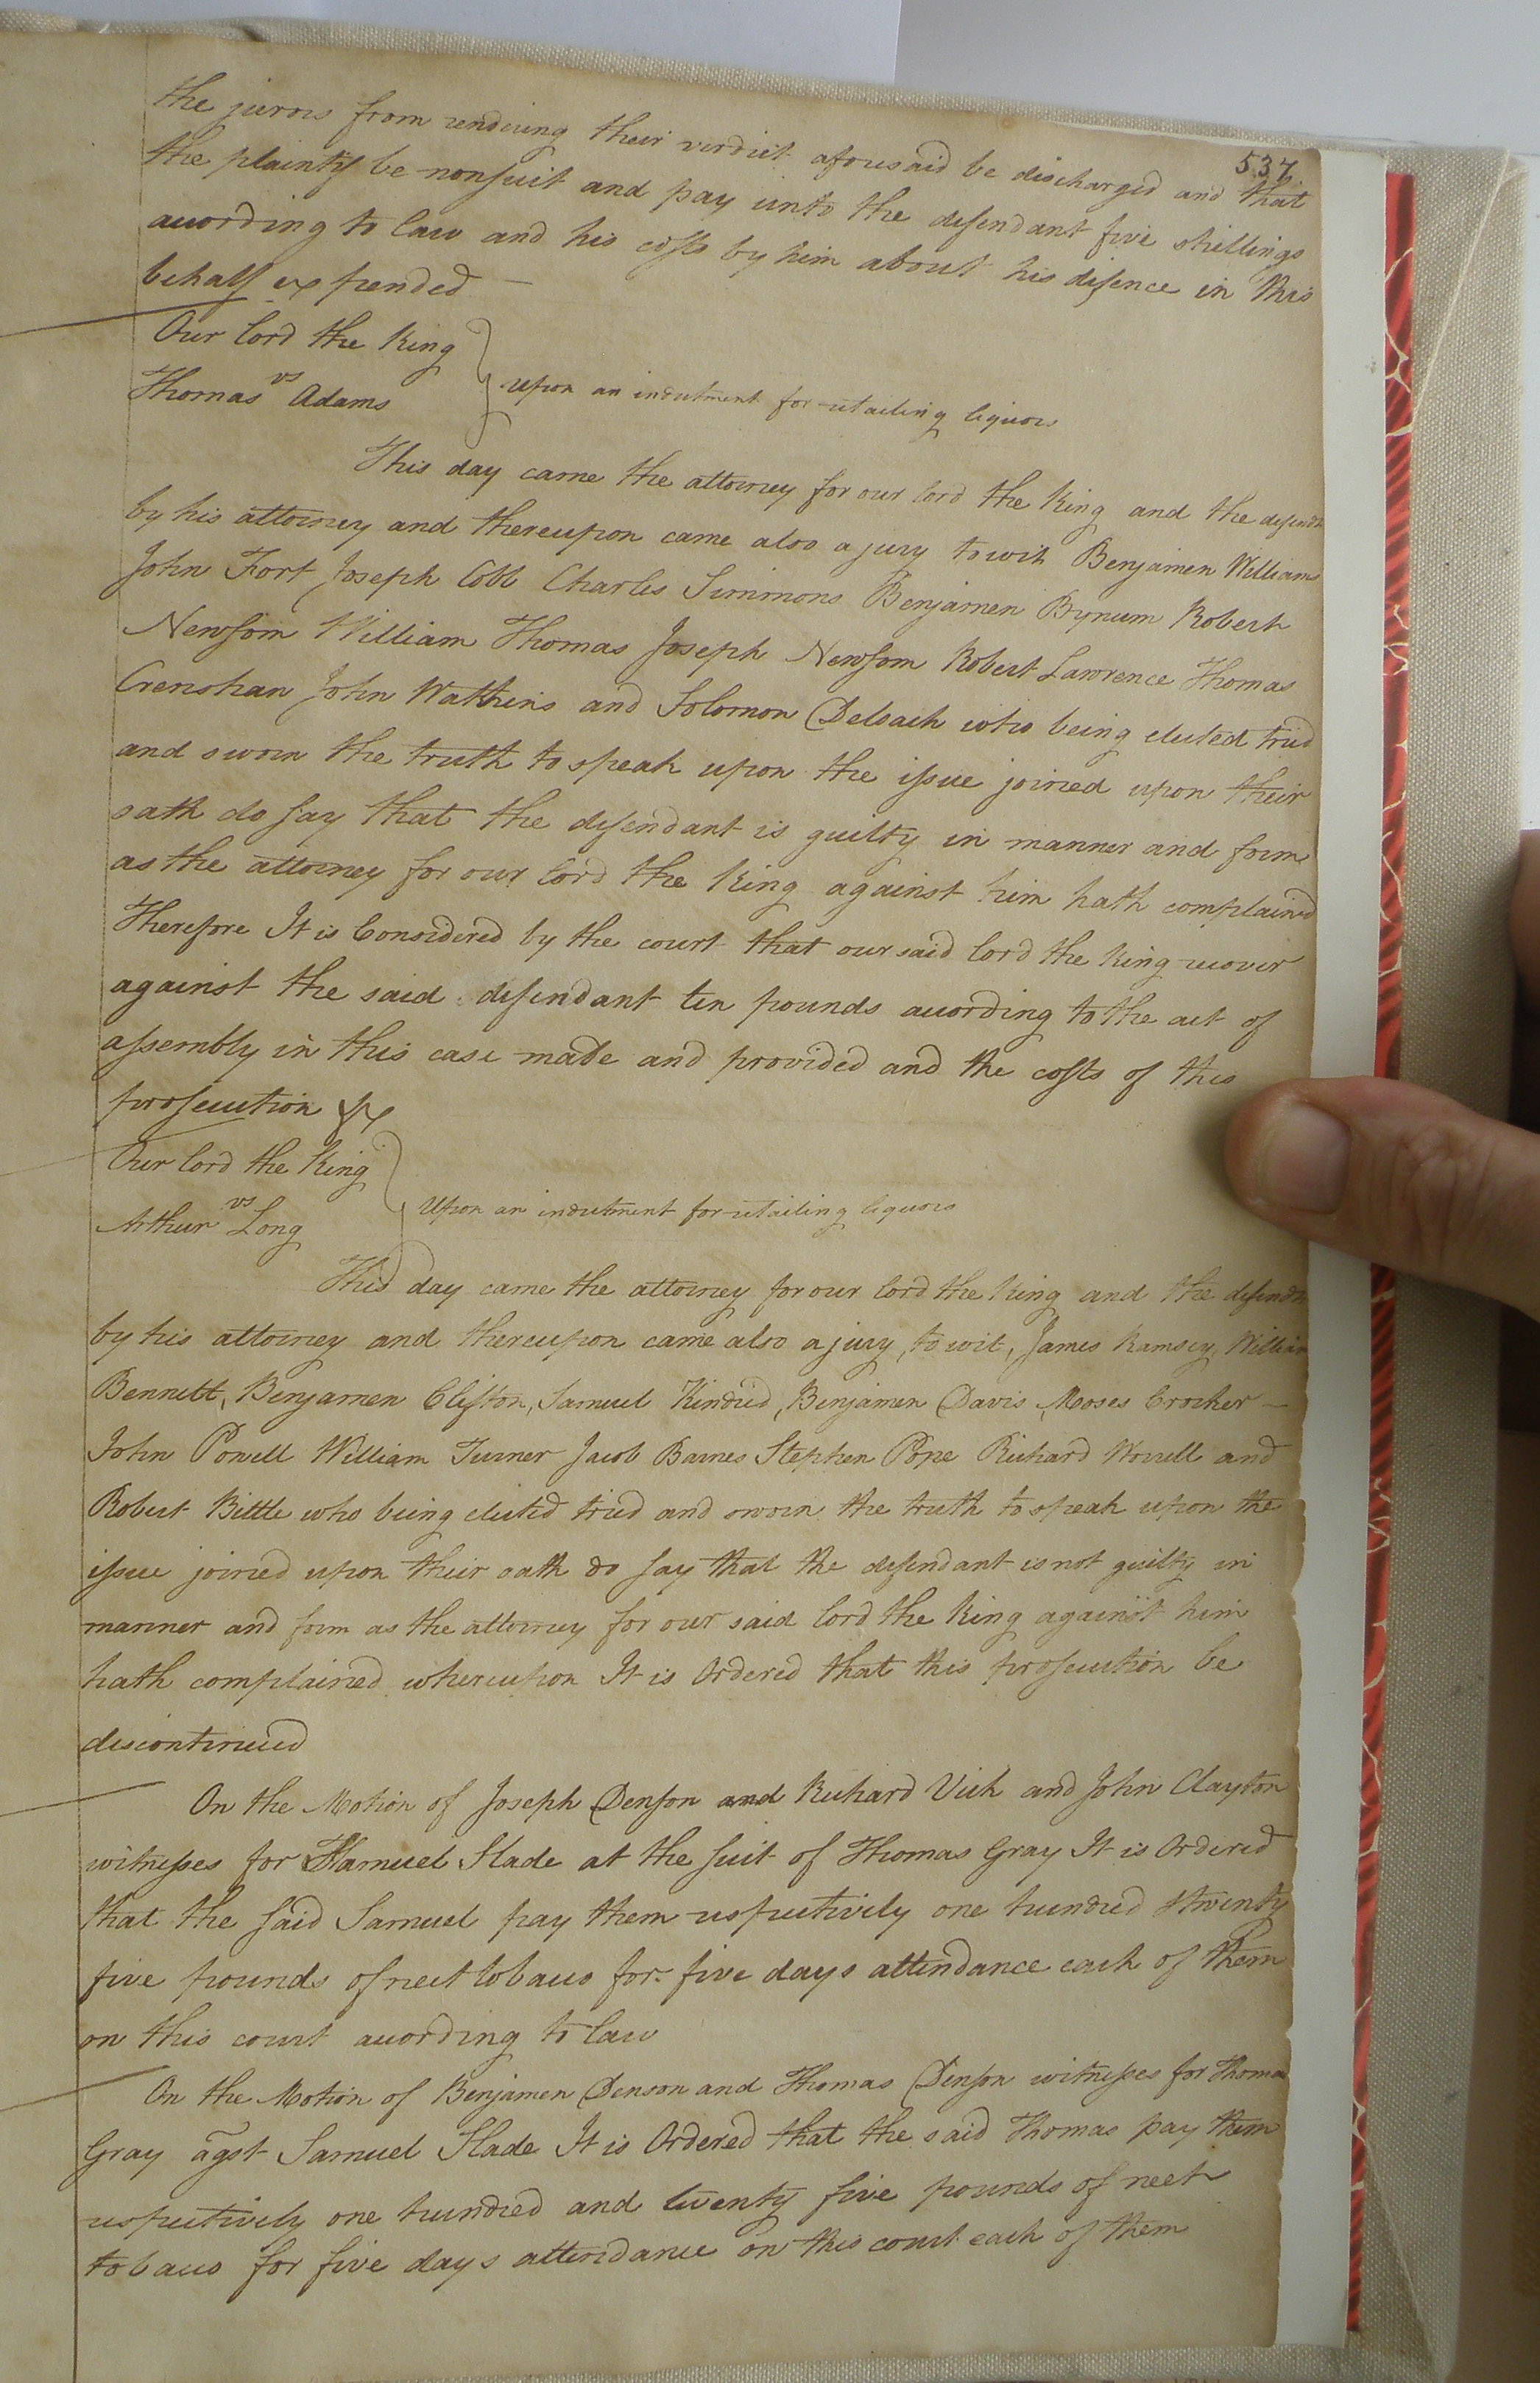 537
the jurors from rendering their verdict aforesaid be discharged and that
the plaintif be nonsuit and pay unto the defendant five shillings
according to law and his costs by him about his defence in this
behalf expended —
Our lord the King
vs
Thomas Adams
Upon an indictment for retailing liquors
This day came the attorney for our lord the King and the defendt
by his attorney and thereupon came also a jury to wit Benjamen Williams
John Fort Joseph Cobb Charles Simmons Benjamen Bynum Robert
Newsom William Thomas Joseph Newsom Robert Lawrence Thomas
Crenshan John Watkins and Solomon Deloach who being elected tried
and sworn the truth to speak upon the issue joined upon their
oath do say that the defendant is guilty in manner and form
as the attorney for our lord the King against him hath complained
Therefore It is Considered by the court that our said lord the King recover
against the said defendant ten pounds according to the act of
assembly in this case made and provided and the costs of this
prosecution &c
Our lord the King
vs
Arthur Long
Upon an indictment for retailing liquors
This day came the attorney for our lord the King and the defendt
by his attorney and thereupon came also a jury, to wit, James Ramsey, William
Bennett, Benjamen Clifton, Samuel Kindred, Benjamen Davis Moses Crocker —
John Powell William Turner Jacob Barnes Stephen Pope Richard Worrell and
Robert Bittle who being elected tried and sworn the truth to speak upon the
issue joined upon their oath do say that the defendant is not guilty in
manner and form as the attorney for our said lord the King against him
hath complained whereupon It is Ordered that this prosecution be
discontinued
On the Motion of Joseph Denson and Richard Vick and John Clayton
witnesses for Samuel Slade at the suit of Thomas Gray It is Ordered
that the said Samuel pay them respectively one hundred & twenty
five pounds of neet tobacco for five days attendance each of them
on this court according to law
On the Motion of Benjamen Denson and Thomas Denson witnesses for Thomas
Gray agst Samuel Slade It is Ordered that the said Thomas pay them
respectively one hundred and twenty five pounds of neet
tobacco for five days attendance on this court each of them